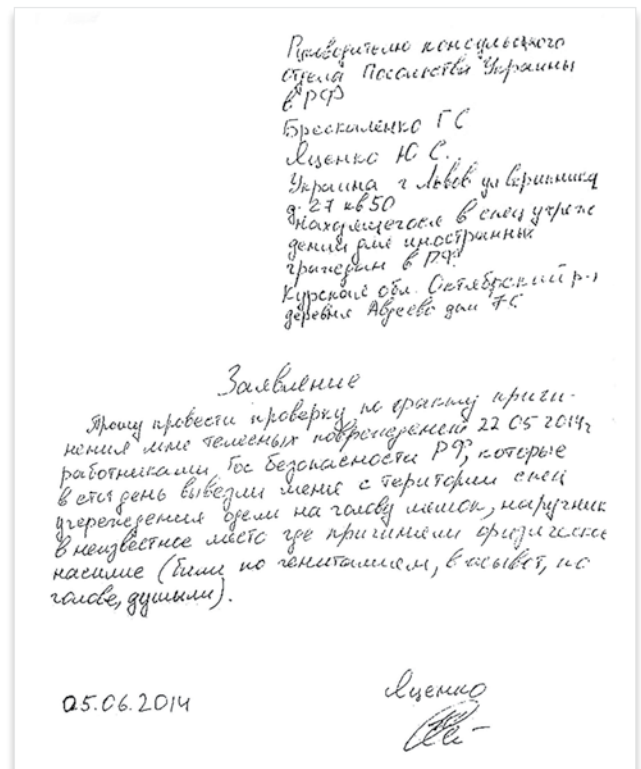 Руководителю консульского
отдела Посольства Украины
в РФ
Брескаленко Г С
Яценко Ю С.
Украина г Львов ул
д. 27 кв 50
находящегося в спец учреж
дении для иностранных
граждан в РФ.
Курская обл. Октябрьский р-н
деревня Авдеева дом 75
Заявление
Прошу провести проверку по факту причи-
нения мне телесных повреждений 22 05 2014г
работниками Гос безопасности РФ, которые
в этот день вывезли меня с територии спец
учереждения одели на голову мешок, наручник
в неизвестное место где применяли физическое
насилие (били по гениталием, в живот, по
голове, душыли).
05.06.2014
Яценко